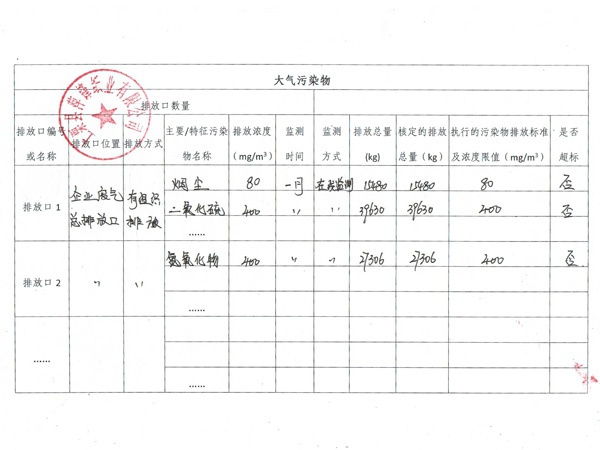 大气污染物
排放口数量
排放口编号或名称 排放口位置 排放方式 主要/特征污染物名称 排放浓度(mg/m³) 监测时间 监测方式 排放总量(kg) 核定的排放总量(kg) 执行的污染物排放标准及浓度限值(mg/m³) 是否超标
排放口1 企业废气总排放口 有组织排放 烟尘 80 一月 在线监测 15480 15480 80 否
二氧化硫 400 〃 〃 39630 39630 400 否
……
排放口2 〃 〃 氮氧化物 400 〃 〃 27306 27306 400 否
……
……
……